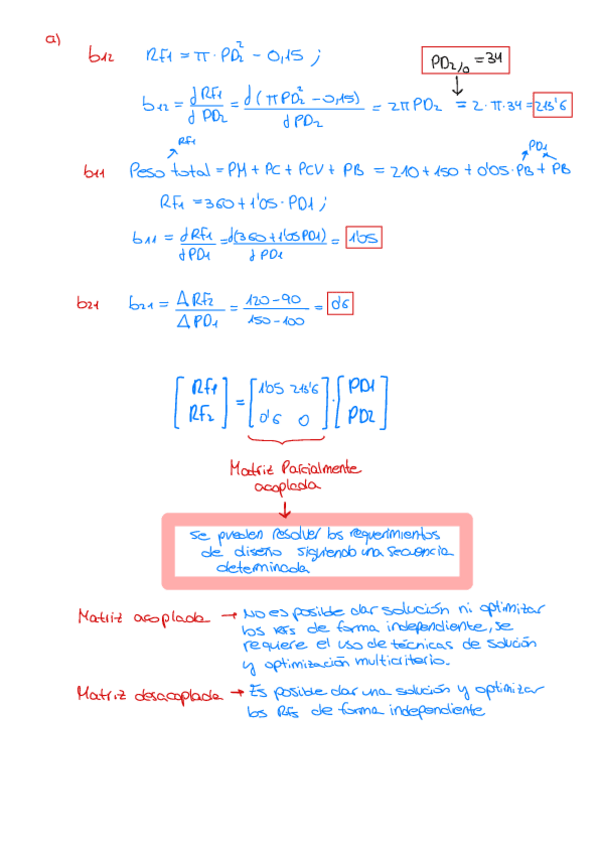 a)
b12 RF1 = π · PD2² − 0,15 ;
PD2/0 = 34
b12 = dRF1/dPD2 = d(πPD2² − 0,15)/dPD2 = 2πPD2 = 2 · π · 34 = 213'6
RF1
PD1
b11 Peso total = PM + PC + PCV + PB = 210 + 150 + 0'05 · PB + PB
RF1 = 360 + 1'05 · PD1 ;
b11 = dRF1/dPD1 = d(360 + 1'05PD1)/dPD1 = 1'05
b21 b21 = ΔRF2/ΔPD1 = 120 − 90/150 − 100 = 0'6
[RF1] = [1'05 213'6] · [PD1]
[RF2] [0'6 0] [PD2]
Matriz Parcialmente
acoplada
Se pueden resolver los requerimientos
de diseño siguiendo una secuencia
determinada
Matriz acoplada → No es posible dar solución ni optimizar
los RFs de forma independiente, se
requiere el uso de técnicas de solución
y optimización multicriterio.
Matriz desacoplada → Es posible dar una solución y optimizar
los RFs de forma independiente